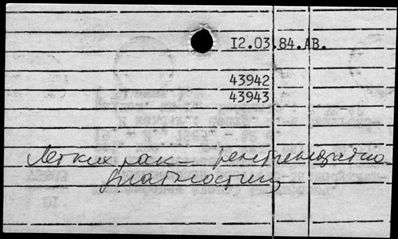 12.03.84.АВ.
43942
43943
Легких рак — рентгенодиагностика